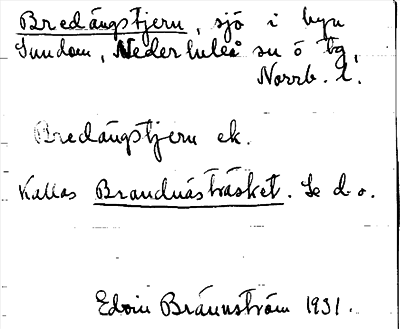 Bredängstjern, sjö i byn
Sundom, Nederluleå sn ö tg,
Norrb. l.
Bredängstjern ek.
Kallas Brandnästräsket. Se d.o.
Edvin Brännström 1931.